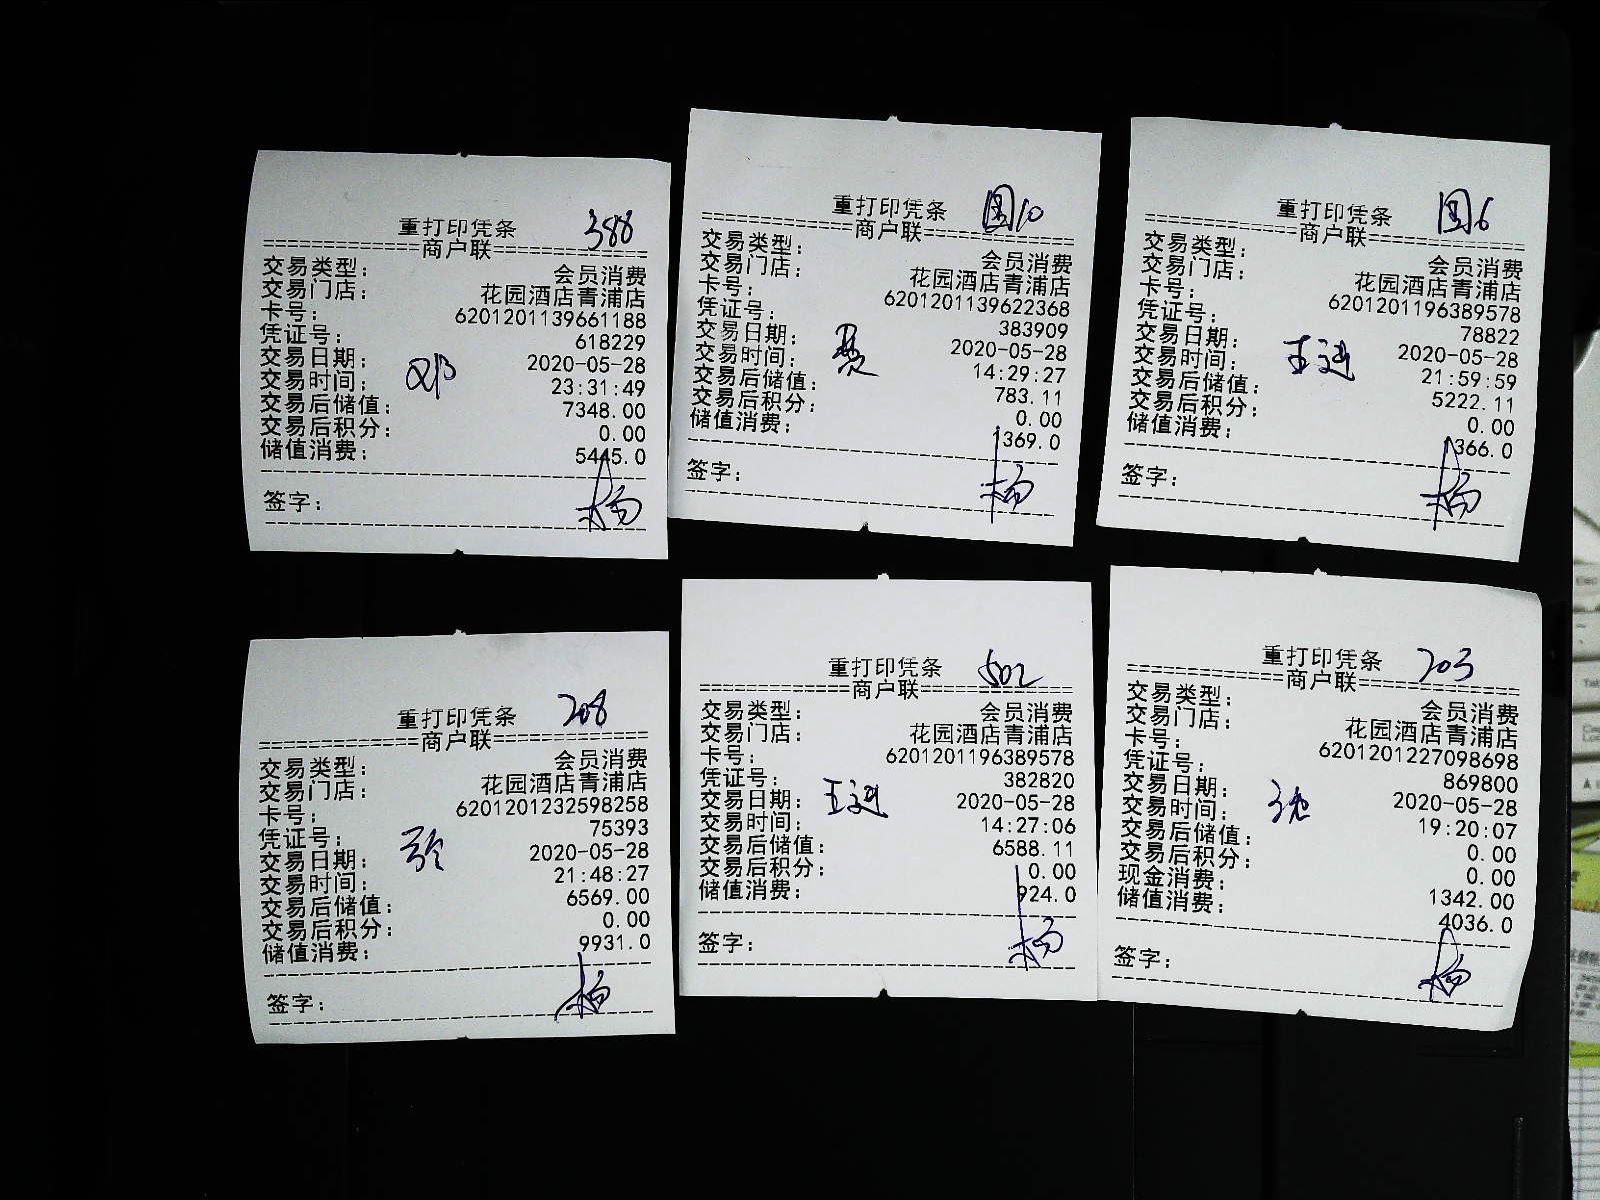 重打印凭条 388
==============商户联==============
交易类型： 会员消费
交易门店： 花园酒店青浦店
卡号： 6201201139661188
凭证号： 618229
交易日期： 2020-05-28
交易时间： 23:31:49
交易后储值： 7348.00
交易后积分： 0.00
储值消费： 5445.0
签字： 杨
重打印凭条 图10
==============商户联==============
交易类型： 会员消费
交易门店： 花园酒店青浦店
卡号： 6201201139622368
凭证号： 383909
交易日期： 2020-05-28
交易时间： 14:29:27
交易后储值： 783.11
交易后积分： 0.00
储值消费： 1369.0
签字： 杨
重打印凭条 图6
==============商户联==============
交易类型： 会员消费
交易门店： 花园酒店青浦店
卡号： 6201201196389578
凭证号： 78822
交易日期： 2020-05-28
交易时间： 21:59:59
交易后储值： 5222.11
交易后积分： 0.00
储值消费： 1366.0
签字： 杨
重打印凭条 208
==============商户联==============
交易类型： 会员消费
交易门店： 花园酒店青浦店
卡号： 6201201232598258
凭证号： 75393
交易日期： 2020-05-28
交易时间： 21:48:27
交易后储值： 6569.00
交易后积分： 0.00
储值消费： 9931.0
签字： 杨
重打印凭条 502
==============商户联==============
交易类型： 会员消费
交易门店： 花园酒店青浦店
卡号： 6201201196389578
凭证号： 382820
交易日期： 2020-05-28
交易时间： 14:27:06
交易后储值： 6588.11
交易后积分： 0.00
储值消费： 924.0
签字： 杨
重打印凭条 203
==============商户联==============
交易类型： 会员消费
交易门店： 花园酒店青浦店
卡号： 6201201227098698
凭证号： 869800
交易日期： 2020-05-28
交易时间： 19:20:07
交易后储值： 0.00
交易后积分： 0.00
现金消费： 1342.00
储值消费： 4036.0
签字： 杨